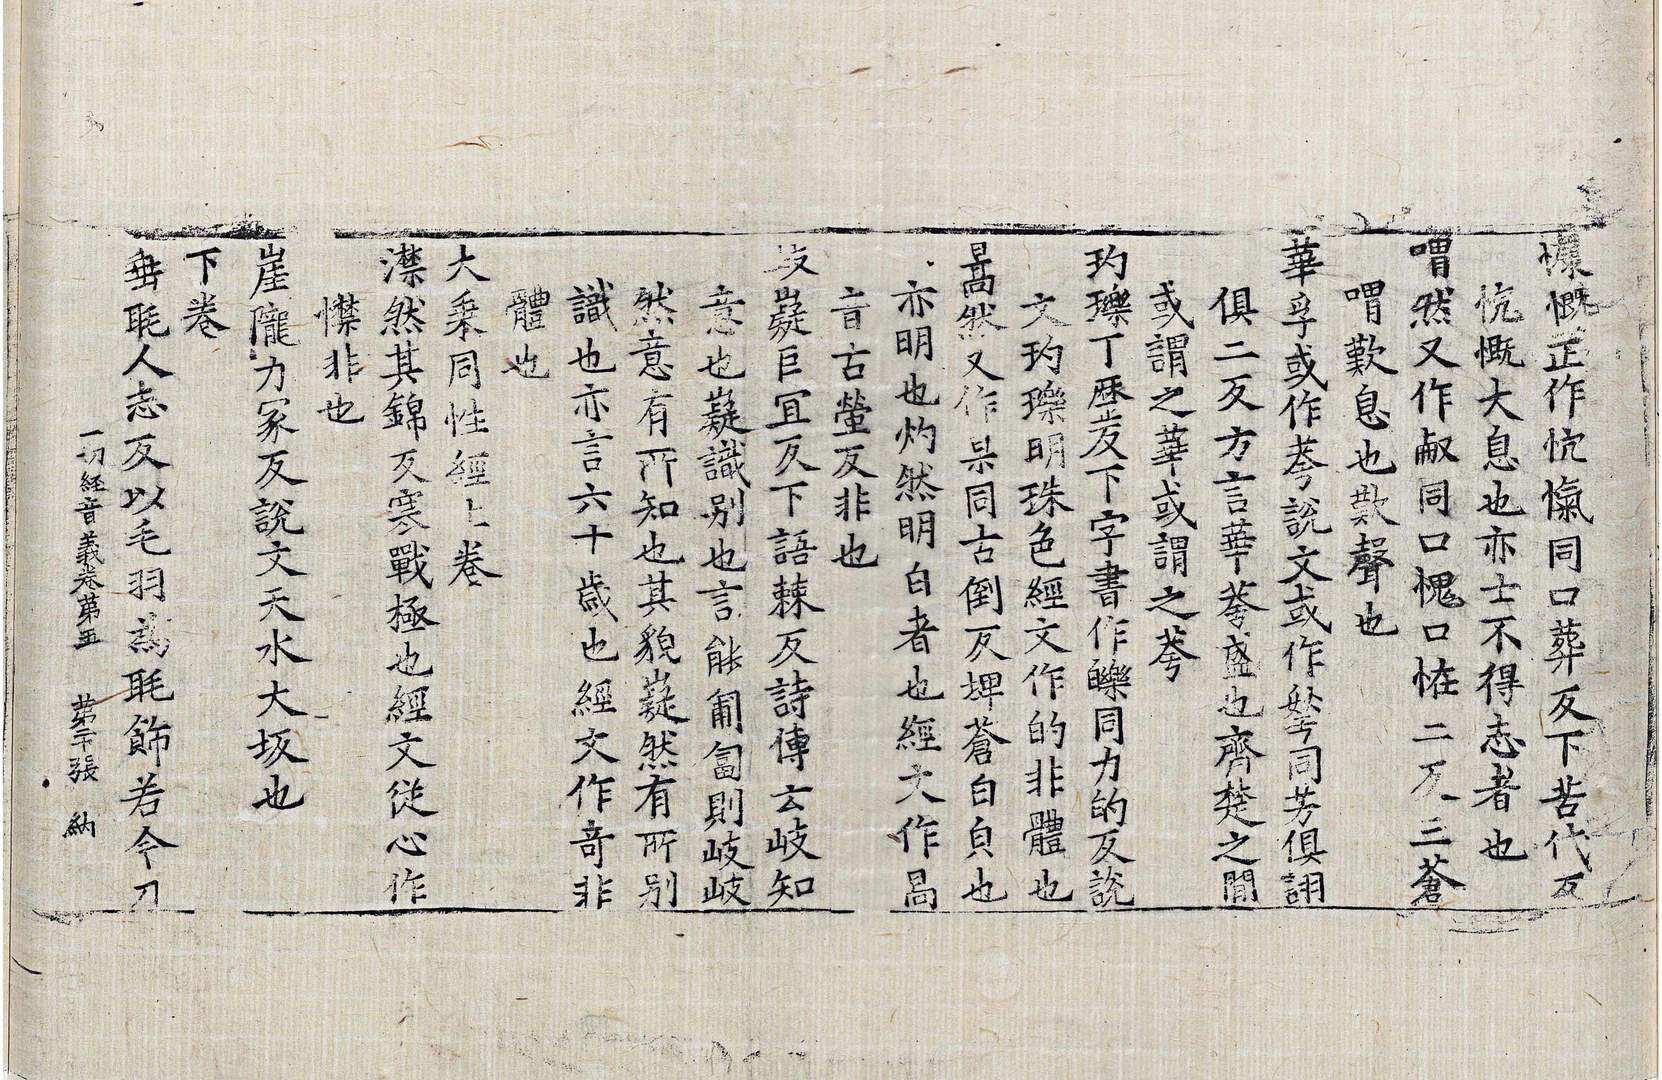 慷慨正作忼愾同口葬反下苦代反
忼慨大息也亦士不得志者也
喟然又作嘳同口愧口恠二反三蒼
喟歎息也歎聲也
華孚或作荂說文或作𦻏同芳俱詡
俱二反方言華荂盛也齊楚之間
或謂之華或謂之荂
玓瓅丁歷反下字書作皪同力的反說
文玓瓅明珠色經文作的非體也
暠然又作杲同古倒反埤蒼白皃也
亦明也灼然明白者也經文作曷
音古螢反非也
岐嶷巨宜反下語棘反詩傳云岐知
意也嶷識別也言能匍匐則岐岐
然意有所知也其貌嶷然有所別
識也亦言六十歲也經文作奇非
體也
大乘同性經上卷
澿然其錦反寒戰極也經文從心作
懍非也
崖隴力冢反說文天水大坂也
下卷
毦毦人志反以毛羽為毦飾若今刀
一切經音義卷第五 第二十張 納